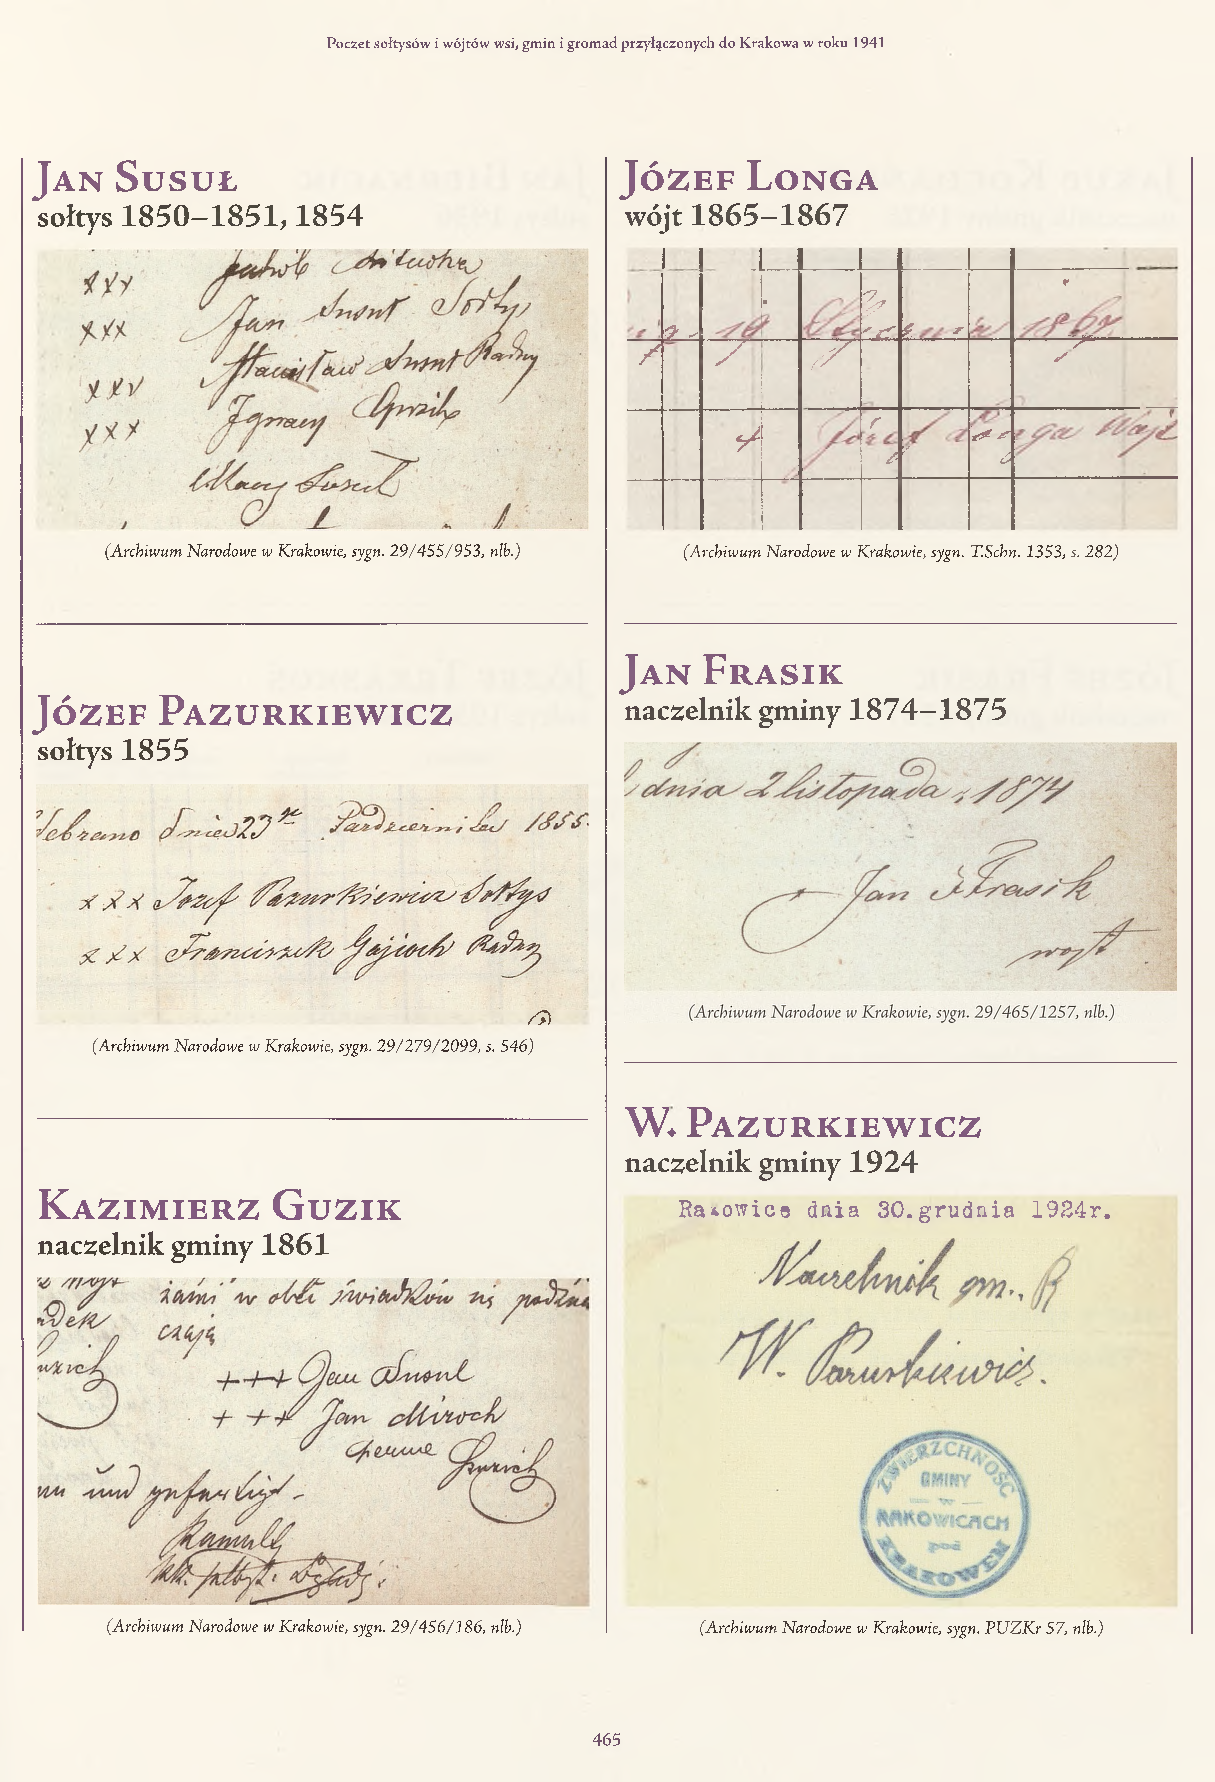 Poczet sołtysów i wójtów wsi, gmin i gromad przyłączonych do Krakowa w roku 1941
Jan Susuł
sołtys 1850–1851, 1854
xxx Jakób
xxx Jan Susuł Sołtys
xxx Stanisław Susuł Radny
xxx Ignacy Guzik
Susuł
(Archiwum Narodowe w Krakowie, sygn. 29/455/953, nlb.)
Józef Pazurkiewicz
sołtys 1855
debrano dnia 23go Pardziernika 1855
xxx Jozef Pazurkiewicz Sołtys
xxx Franciszek Gajioch Radny
(Archiwum Narodowe w Krakowie, sygn. 29/279/2099, s. 546)
Kazimierz Guzik
naczelnik gminy 1861
żami w obec świadków się podzna
czają
+++ Jan Susul
+++ Jan Miroch
Guzich
und gefertigt.
(Archiwum Narodowe w Krakowie, sygn. 29/456/186, nlb.)
Józef Longa
wójt 1865–1867
19 Stycznia 1867
+ Józef Longa Wójt
(Archiwum Narodowe w Krakowie, sygn. T.Schn. 1353, s. 282)
Jan Frasik
naczelnik gminy 1874–1875
dnia 2 listopada 1874
Jan Frasik
wojt
(Archiwum Narodowe w Krakowie, sygn. 29/465/1257, nlb.)
W. Pazurkiewicz
naczelnik gminy 1924
Rakowice dnia 30.grudnia 1924r.
Naczelnik gm. R
W. Pazurkiewicz.
ZWIERZCHNOŚĆ
GMINY
w
RAKOWICACH
pod
KRAKOWEM
(Archiwum Narodowe w Krakowie, sygn. PUZKr 57, nlb.)
465